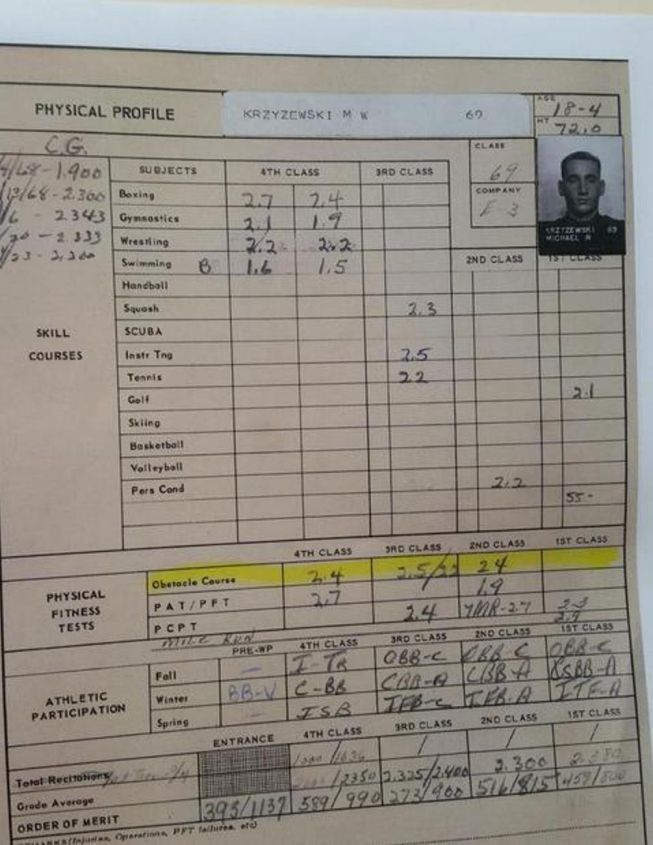 PHYSICAL PROFILE KRZYZEWSKI M W 69 AGE 18-4
HT 72.0
C.G.
4/68-1.900
13/68-2.300
6 - 2.343
20 - 2.333
23-2,200
SUBJECTS 4TH CLASS 3RD CLASS CLASS 69
COMPANY E-3
KRZYZEWSKI 69
MICHAEL W
2ND CLASS 1ST CLASS
SKILL COURSES
Boxing 2.7 2.4
Gymnastics 2.1 1.9
Wrestling 2.2 2.2
Swimming B 1.6 1.5
Handball
Squash 2.3
SCUBA
Instr Tng 2.5
Tennis 22
Golf 2.1
Skiing
Basketball
Volleyball
Pers Cond 2.2
55-
4TH CLASS 3RD CLASS 2ND CLASS 1ST CLASS
PHYSICAL FITNESS TESTS
Obstacle Course 2.4 2.5/22 24
PAT/PFT 2.7 1.9
PCPT 2.4 YMR-2.7 2.3
2.9
MILE RUN
PRE-WP 4TH CLASS 3RD CLASS 2ND CLASS 1ST CLASS
ATHLETIC PARTICIPATION
Fall - I-TR OBB-C OBB-C OBB-C
Winter BB-V C-BB CBB-A CBB-A RSBB-A
Spring - ISB IFB-C IFB-A ITF-A
ENTRANCE 4TH CLASS 3RD CLASS 2ND CLASS 1ST CLASS
Total Recitations 1000/1036 / / /
Grade Average /2350 2.325/2.400 2.300
ORDER OF MERIT 393/1137 589/990 273/900 516/815 459/800
REMARKS (Injuries, Operations, PFT failures, etc)